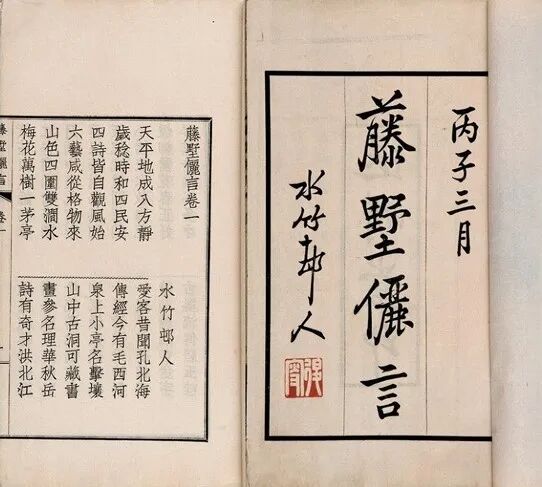 丙子三月
藤墅儷言
水竹邨人
藤墅儷言卷一
水竹邨人
天平地成八方靜 愛客昔聞孔北海
歲稔時和四民安 傳經今有毛西河
四詩皆自觀風始 泉上小亭名擊壤
六藝咸從格物來 山中古洞可藏書
山色四圍雙澗水 畫參名理華秋岳
梅花萬樹一茅亭 詩有奇才洪北江
藤墅儷言 卷一